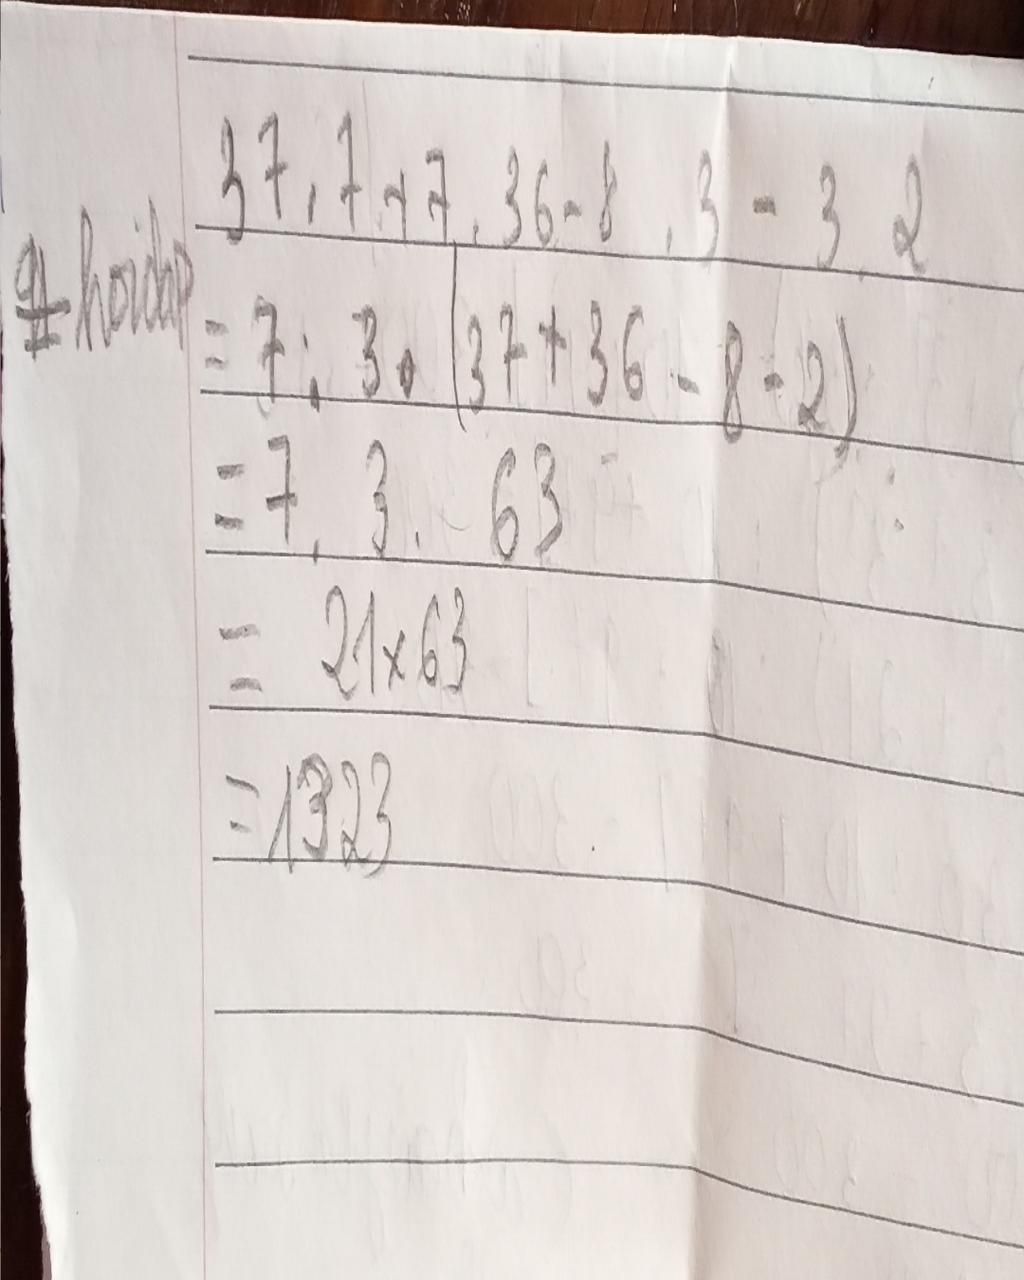 37.7+7.36-8.3-3.2
# hoidap
=7.3.(37+36-8-2)
=7.3.63
= 21x63
=1323